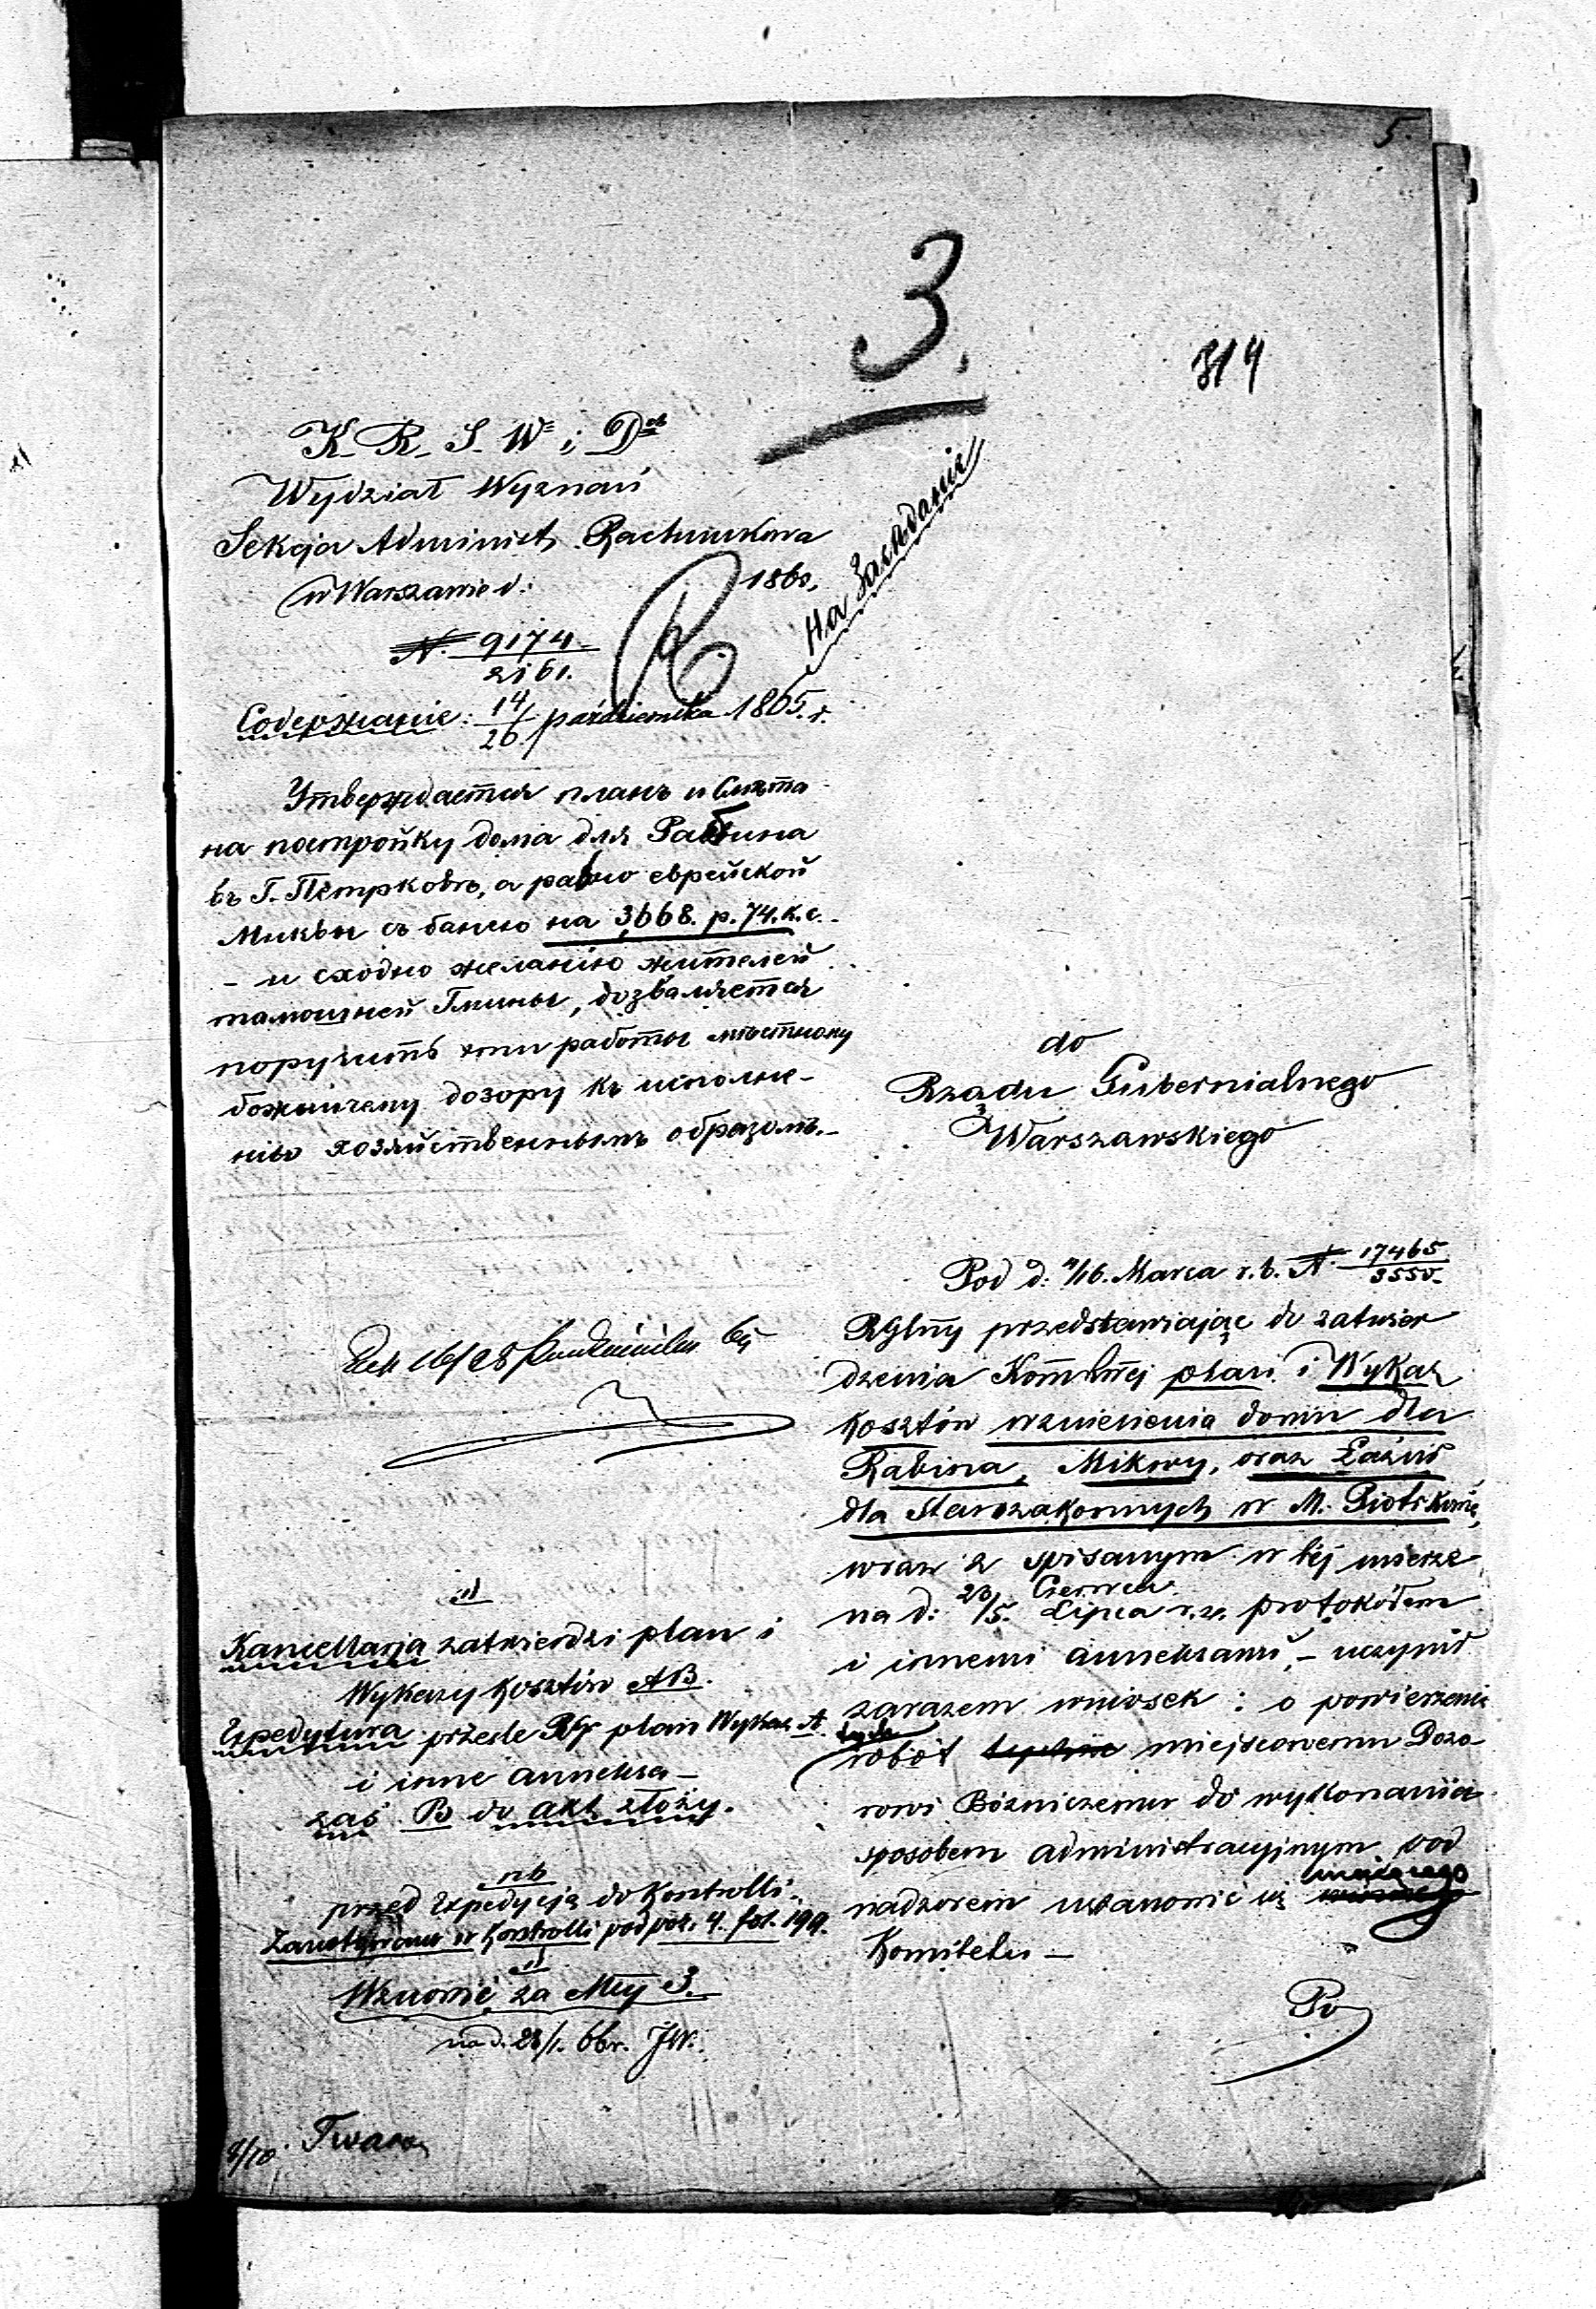 5
3.
314
K. R. S. W. i D.
Wydział Wyznań
Sekcja Administ. Rachunkowa
w Warszawie d: 1860.
На Заседании
N. 9174.
2161.
Содержаніе: 14/26 października 1865. r.
Утверждается планъ и Смѣта
на постройку дома для Раббина
въ Г. Петрковѣ, а равно еврейской
Миквы съ банею на 3,668. р. 74. к. с.
- и сходно желанію жителей
тамошней Гмины, дозваляется
поручить эти работы мѣстному
божничему дозору къ исполне-
нію хозяйственнымъ образомъ.-
do
Rządu Gubernialnego
Warszawskiego
Pod d: 4/16. Marca r. b. N. 17465
3550.
RGlny przedstawiając do zatwier
dzenia Kommłnej plan i Wykaz
kosztów wzniesienia domu dla
Rabina, Mikwy, oraz Łaźni
dla Starozakonnych w M. Piotrkowie,
wraz z spisanym w téj mierze
Czerwca
na d: 23/5. Lipca r. z. protokółem
i innemi anneksami, - uczynił
zarazem wniosek: o powierzenie
tych
robót miejscowemu Dozo-
rowi Bóżniczemu do wykonania
sposobem administracyjnym pod
mającego
nadzorem ustanowić się
Komitetu -
Po
16/28 65
Kancellarja zatwierdzi plan i
Wykazy kosztów AB.
Expedytura prześle RGr plan Wykaz A
i inne anneksa -
zaś B do akt złoży.
nb
przed Expedycją do Kontrolli.
Zanotowano w Kontrolli pod poz. 4. fol. 199.
Wznowić za Mcy 3.
na d. 28/1. 66 r. JW.
8/10.